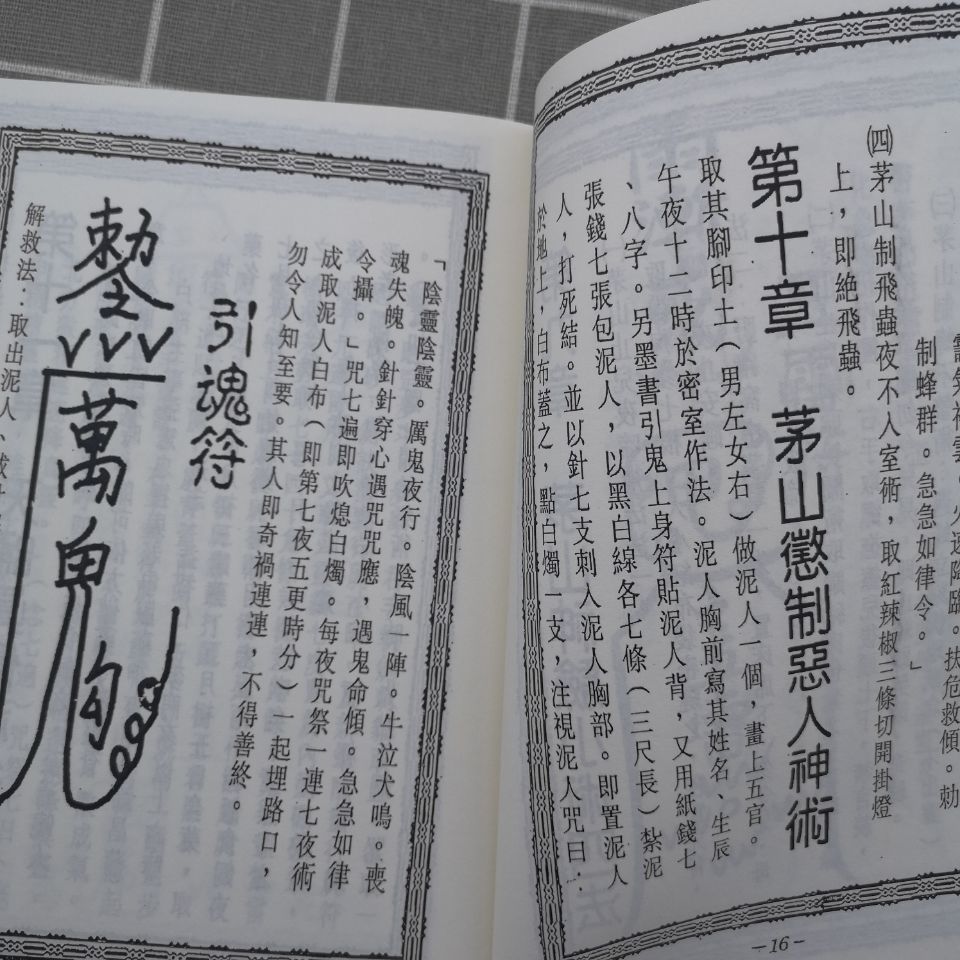 制蜂群。急急如律令。」
㈣茅山制飛蟲夜不入室術，取紅辣椒三條切開掛燈
上，即絕飛蟲。
第十章　茅山懲制惡人神術
取其腳印土（男左女右）做泥人一個，畫上五官。
午夜十二時於密室作法。泥人胸前寫其姓名、生辰
、八字。另墨書引鬼上身符貼泥人背，又用紙錢七
張錢七張包泥人，以黑白線各七條（三尺長）紮泥
人，打死結。並以針七支刺入泥人胸部。即置泥人
於地上，白布蓋之，點白燭一支，注視泥人咒曰：
－16－
「陰靈陰靈。厲鬼夜行。陰風一陣。牛泣犬鳴。喪
魂失魄。針針穿心遇咒咒應，遇鬼命傾。急急如律
令攝。」咒七遍即吹熄白燭。每夜咒祭一連七夜術
成取泥人白布（即第七夜五更時分）一起埋路口，
勿令人知至要。其人即奇禍連連，不得善終。
引魂符
萬鬼
解救法：取出泥人、